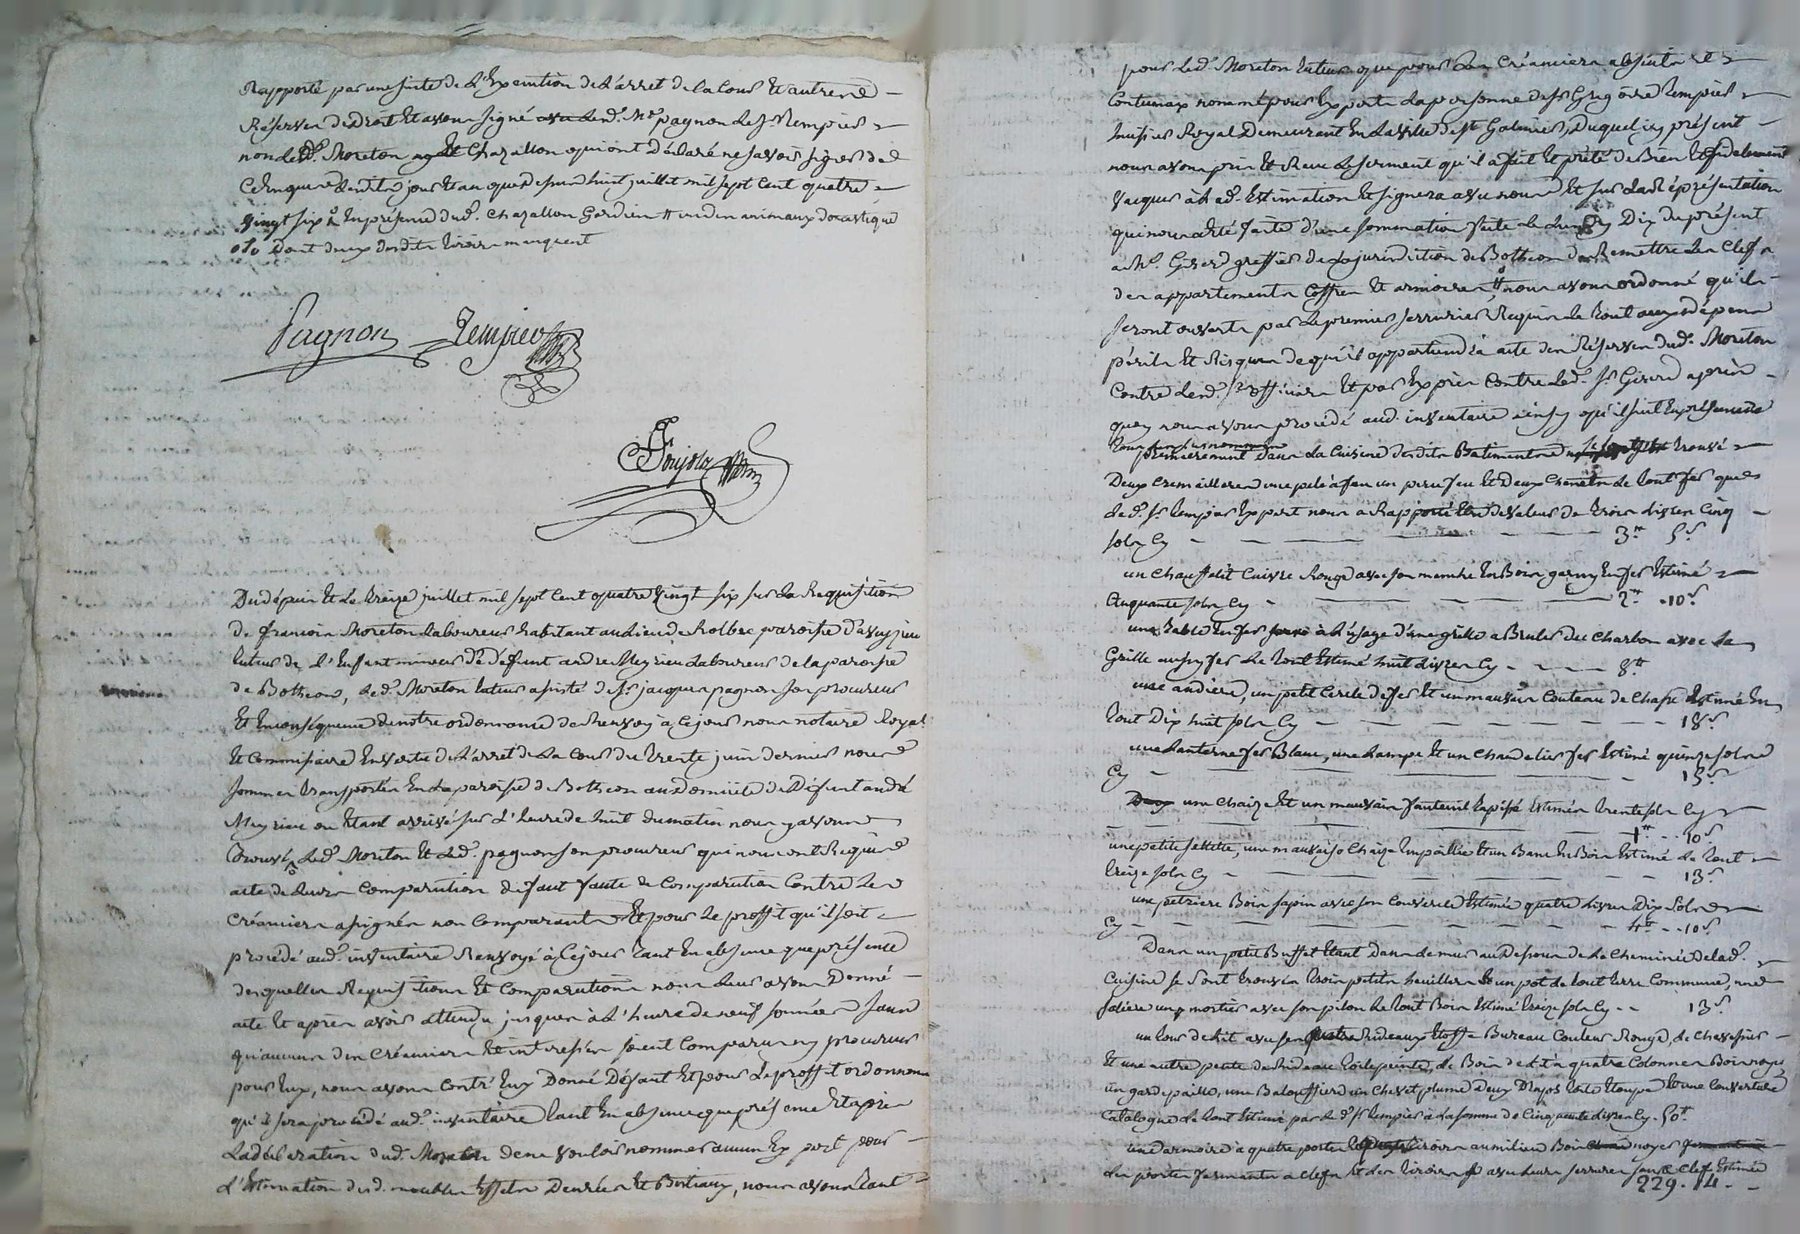 Rapporté par une suite de l'Execution de l'arret de la Cour Et autres
Réserves de Droit Et avons signé avec led. Me pagnon le Sr Rempier
non led. Moreton Chazallon qui ont déclaré ne savoir signer de
ce Enquis lesdits jour Et an que dessus huit juillet mil sept Cent quatre
vingt six En présence dud. Chazallon Gardien
Dont deux desdits tiroirs manquent
Pagnon Rempier
Du depuis Et le treize juillet mil sept Cent quatre vingt six sur la Requisition
de francois Moreton Laboureur habitant au Lieu de Rolbec paroisse d'aveyzieu
tuteur de l'Enfant mineur de défunt andré Meyrieu Laboureur de la paroisse
de Botheon, led. Moreton tuteur assisté de Sr jacques pagnon son procureur
Et En conséquence de notre ordonnance de Renvoy à Ce jour nous notaire Royal
Et Commissaire En vertu de l'arret de la Cour du trente juin dernier nous
sommes transportés En la paroisse de Botheon au Domicile de Défunt andré
Meyrieu ou Etant arrivé sur l'heure de huit du matin nous y avons
trouvé led. Moreton Et led. pagnon son procureur qui nous ont Requis
acte de leurs Comparution défaut faute de Comparution Contre les
Créanciers assignés non Comparants Et pour le proffit qu'il soit
procédé aud. inventaire Renvoyé à Ce jour tant En absence que présence
desquelles Requisitions Et Comparutions nous leurs avons Donné
acte Et après avoir attendu jusques à l'heure de neuf sonnées sans
qu'aucun des Créanciers Et interessés soient Comparu ny procureur
pour Eux, nous avons Contr'Eux Donné Défaut Et pour le proffit ordonnons
qu'il sera procédé aud. inventaire tant En absence que présence Et après
la déclaration dud. Moreton de ne vouloir nommer aucun Expert pour
l'Estimation desd. meubles Effets Denrées Et Bestiaux, nous avons tant
pour led. Moreton tuteur que pour les Créanciers absents Et
Contumax nommé pour Expert la personne de Sr Grégoire Rempier
huissier Royal Demeurant En la ville de St Galmier, Duquel icy présent
nous avons pris Et Reçu le serment qu'il a fait Et prêté de Bien Et fidelement
vacquer à lad. Estimation Et signera avec nous Et sur la Représentation
qui nous a été faite d'une sommation faite le Dix du présent
a Me Girard greffier de la jurisdiction de Botheon de Remettre les Clefs
des appartements Coffres Et armoires, nous avons ordonné qu'ils
seront ouverts par le premier serrurier Requis le tout aux dépens
périls Et Risques de qu'il appartiendra acte des Réserves dud. Moreton
Contre lesd. Srs officiers Et par Exprès Contre led. Sr Girard après
quoy nous avons procédé aud. inventaire ainsy qu'il suit En présence
premierement dans la Cuisine desdits Batiments trouvé
Deux Cremailleres une pele à feu un pare feu Et Deux Chenets le tout fer que
led. Sr Rempier Expert nous a Rapporté Etre de valeur de trois Livres Cinq
sols Cy - 3tt 5s
un Chauffelit Cuivre Rouge avec son manche En Bois garny En fer Estimé
Cinquante sols Cy - 2tt 10s
une table En fer à l'usage d'une grille a Bruler du Charbon avec la
Grille aussy fer le tout Estimé huit Livres Cy - 8tt
une andiere, un petit Cercle de fer Et un mauvais Couteau de Chasse Estimé En
tout Dix huit sols Cy - 18s
une Lanterne fer Blanc, une Lampe Et un Chandelier fer Estimé quinze sols
Cy - 15s
une Chaize Et un mauvais fauteuil tapissé Estimés trente sols Cy
- 1tt 10s
une petite sellette, une mauvaise Chaize Empaillée Et un Banc En Bois Estimé le tout
treize sols Cy - 13s
une petriere Bois sapin avec son Couvercle Estimée quatre Livres Dix Sols
Cy - 4tt 10s
Dans un petit Buffet Etant Dans le mur au Dessous de la Cheminée de lad.
Cuisine se sont trouvés trois petits un pot le tout terre Commune, une
saliere un mortier avec son pilon le tout Bois Estimé treize sols Cy - 13s
un tour de lit avec ses quatre Rideaux Etoffe Bureau Couleur Rouge, le Chevessier
Et une autre pente de Rideau toile peinte, le Bois de lit à quatre Colonnes Bois noyer
un garde paille, une Balouffiere un Chevet plume Deux Draps toile Etoupe Et une Couverture
Catalogne le tout Estimé par led. Sr Rempier à la somme de Cinquante Livres Cy - 50tt
une armoire à quatre portes tiroirs au milieu Bois noyer
les portes fermants à Clefs Et les tiroirs avec leurs serrures sans Clef Estimée
229. 14. -